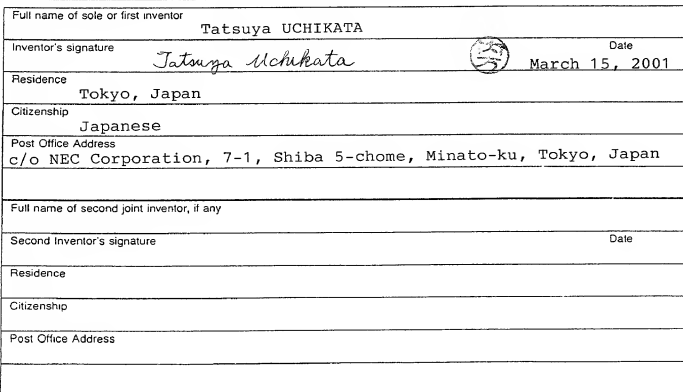 Full name of sole or first inventor
Tatsuya UCHIKATA
Inventor's signature Tatsuya Uchikata Date
March 15, 2001
Residence
Tokyo, Japan
Citizenship
Japanese
Post Office Address
c/o NEC Corporation, 7-1, Shiba 5-chome, Minato-ku, Tokyo, Japan
Full name of second joint inventor, if any
Second Inventor's signature Date
Residence
Citizenship
Post Office Address